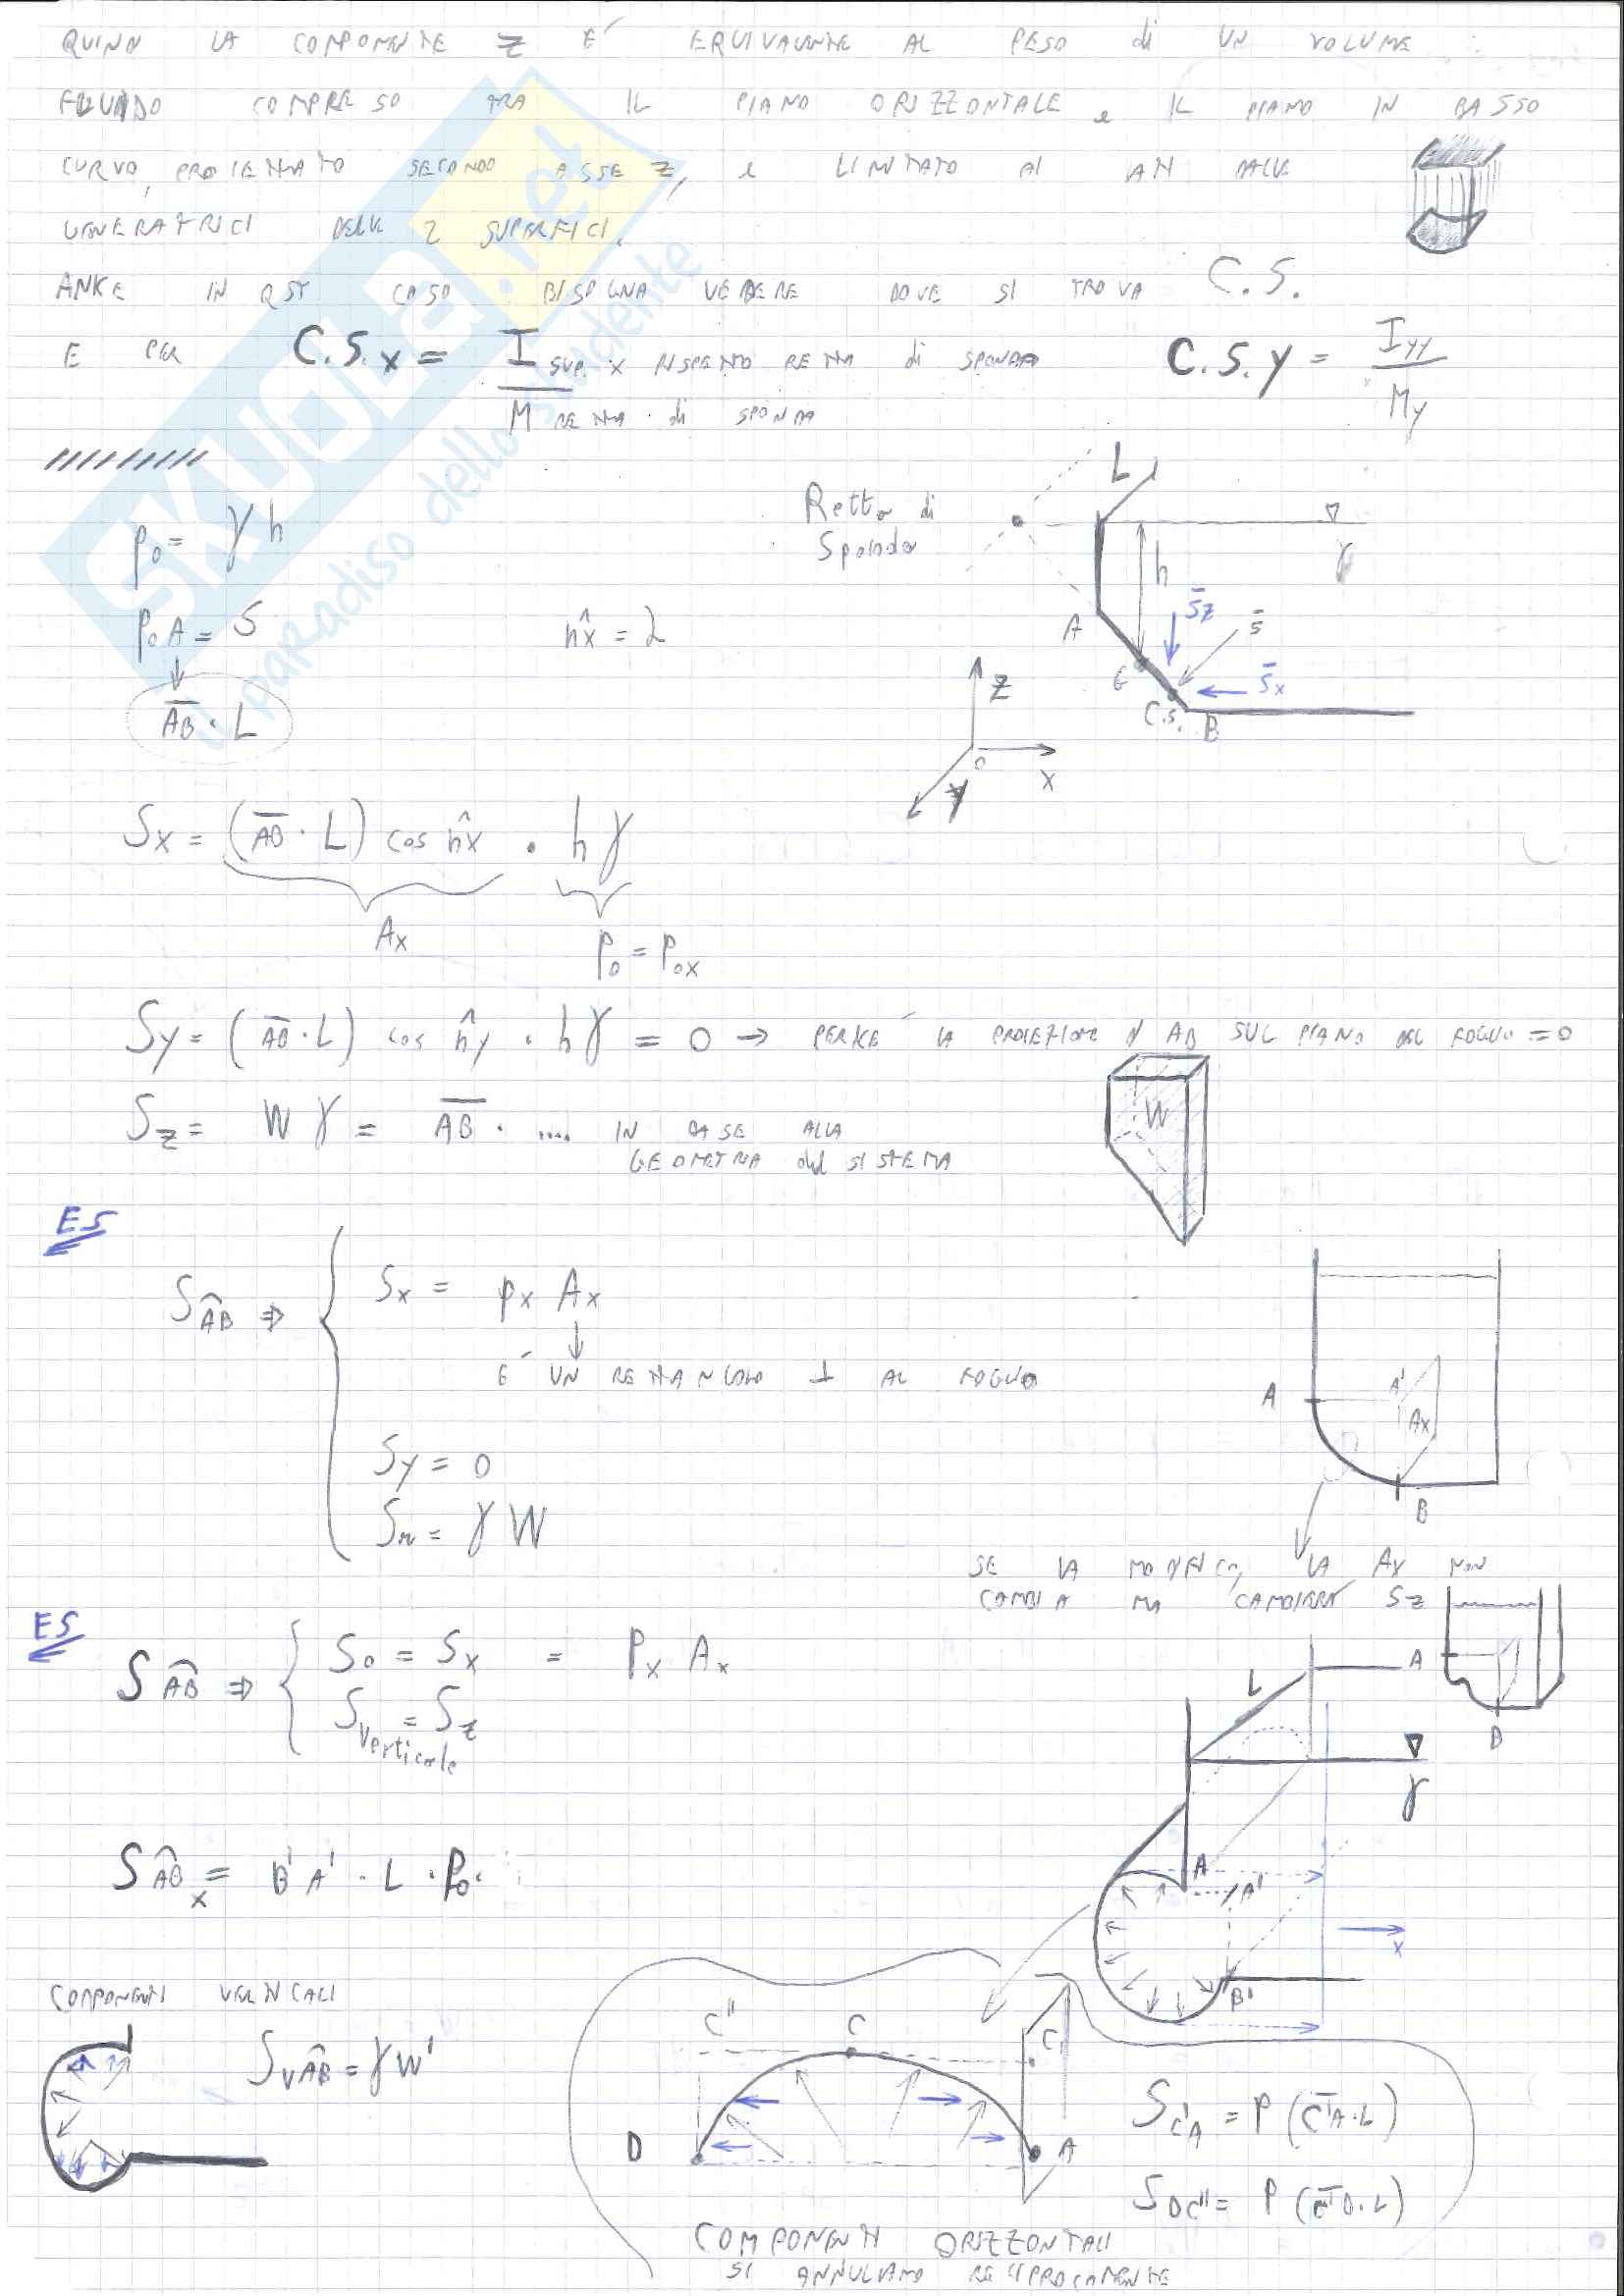 QUINDI LA COMPONENTE Z E' EQUIVALENTE AL PESO di UN VOLUME
FLUIDO COMPRESO TRA IL PIANO ORIZZONTALE e IL PIANO IN BASSO
CURVO, PROIETTATO SECONDO ASSE Z, e LIMITATO AI LATI DALLE
GENERATRICI DELLE 2 SUPERFICI.
ANKE IN QST CASO BISOGNA VEDERE DOVE SI TROVA C.S.
E PER C.S.x = I sup. x RISPETTO RETTA di SPONDA / M RETTA di SPONDA C.S.y = Iyy / My
p0 = γ h
Retta di Sponda
L
h
γ
p0 A = S
n̂x = 2
A
S̄z
S̄
S̄x
G
C.S.
B
AB · L
Z
O
X
Y
Sx = (AB · L) cos n̂x · h γ
Ax
p0 = p0x
Sy = (AB · L) cos n̂y · h γ = 0 → PERKE' LA PROIEZIONE DI AB SUL PIANO DEL FOGLIO = 0
Sz = W γ = AB · .... IN BASE ALLA
GEOMETRIA del SISTEMA
W
ES
S AB ⇒ Sx = px Ax
E' UN RETTANGOLO ⊥ AL FOGLIO
Sy = 0
Sz = γ W
A
A'
Ax
B
SE LA MODIFICO, LA Ax NON
CAMBIA MA CAMBIERA' Sz
ES
S AB ⇒ So = Sx = Px Ax
S verticale = Sz
A
B
L
γ
S AB x = B'A' · L · P0
A
A'
B'
x
COMPONENTI VERTICALI
SV AB = γ W'
C''
C
C'
D
A
S C'A = P (C'A · L)
S DC'' = P (C''D · L)
COMPONENTI ORIZZONTALI
SI ANNULLANO RECIPROCAMENTE
SKUOLA.net
il paradiso dello studente